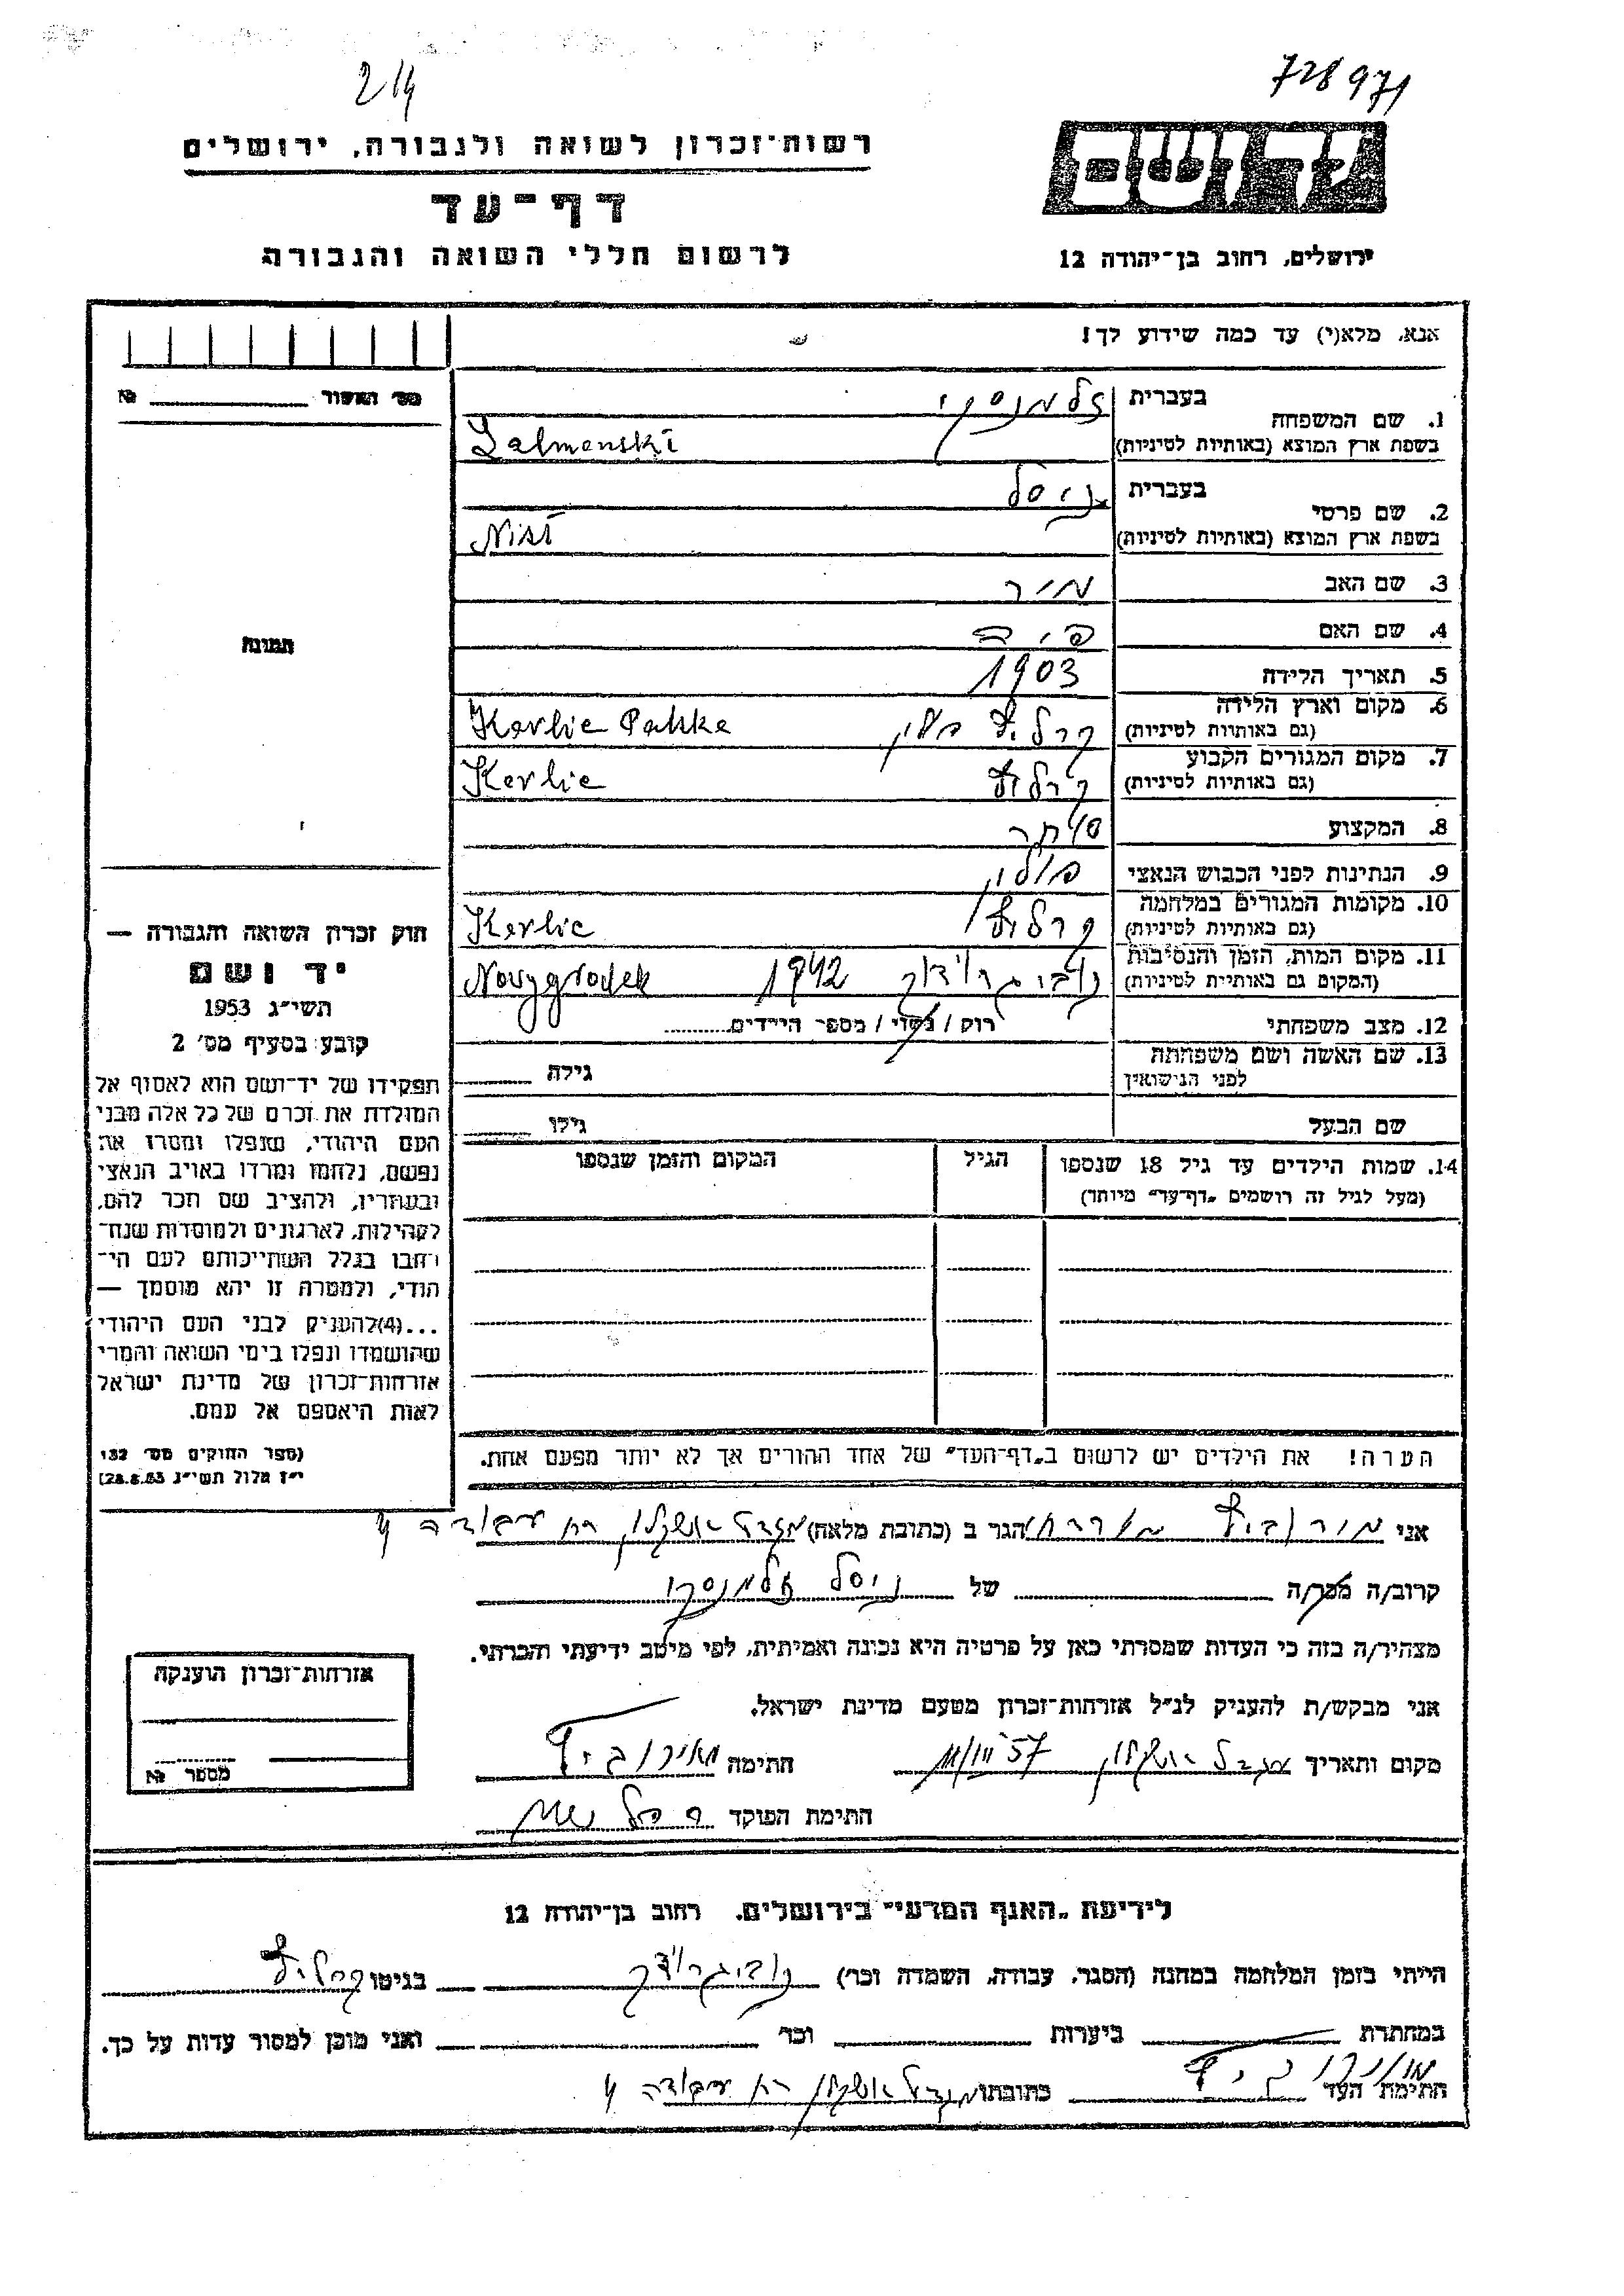 214
728971
רשות-זכרון לשואה ולגבורה, ירושלים
דף-עד
לרשום חללי השואה והגבורה
יד ושם
ירושלים, רחוב בן-יהודה 12
אנא, מלא(י) עד כמה שידוע לך!
מס' האשור №
1. שם המשפחה
בעברית זלמנסקי
בשפת ארץ המוצא (באותיות לטיניות) Zalmenski
2. שם פרטי
בעברית ניסל
בשפת ארץ המוצא (באותיות לטיניות) Nisl
3. שם האב מיר
4. שם האם
5. תאריך הלידה 1903
6. מקום וארץ הלידה
(גם באותיות לטיניות) קרליץ פולין Kerlic Polska
7. מקום המגורים הקבוע
(גם באותיות לטיניות) קרליץ Kerlic
8. המקצוע סוחר
9. הנתינות לפני הכבוש הנאצי פולין
10. מקומות המגורים במלחמה
(גם באותיות לטיניות) קרליץ Kerlic
11. מקום המות, הזמן והנסיבות
(המקום גם באותיות לטיניות) נוביגרודק 1942 Novygrodek
12. מצב משפחתי רוק / נשוי / מספר הילדים
13. שם האשה ושם משפחתה
לפני הנישואין גילה
שם הבעל גילו
14. שמות הילדים עד גיל 18 שנספו
(מעל לגיל זה רושמים "דף-עד" מיוחד)
הגיל
המקום והזמן שנספו
הערה! את הילדים יש לרשום ב"דף-העד" של אחד ההורים אך לא יותר מפעם אחת.
תמונה
חוק זכרון השואה והגבורה —
יד ושם
תשי"ג 1953
קובע בסעיף מס' 2
תפקידו של יד-ושם הוא לאסוף אל
המולדת את זכרם של כל אלה מבני
העם היהודי, שנפלו ומסרו את
נפשם, נלחמו ומרדו באויב הנאצי
ובעוזריו, ולהציב שם וזכר להם,
לקהילות, לארגונים ולמוסדות שנח-
רבו בגלל השתייכותם לעם הי-
הודי, ולמטרה זו יהא מוסמך —
...(4) להעניק לבני העם היהודי
שהושמדו ונפלו בימי השואה והמרי
אזרחות-זכרון של מדינת ישראל
לאות היאספם אל עמם.
(ספר החוקים מס' 132
י"ז אלול תשי"ג 28.8.53)
אני הגר ב (כתובת מלאה) מגדל אשקלון רח' עבודה 4
קרוב/ה מכר/ה של ניסל זלמנסקי
מצהיר/ה בזה כי העדות שמסרתי כאן על פרטיה היא נכונה ואמיתית, לפי מיטב ידיעתי והכרתי.
אני מבקש/ת להעניק לנ"ל אזרחות-זכרון מטעם מדינת ישראל.
מקום ותאריך מגדל אשקלון חתימה
חתימת הפוקד
אזרחות-זכרון הוענקה
מספר №
לידיעת "האגף המדעי" בירושלים, רחוב בן-יהודה 12
הייתי בזמן המלחמה במחנה (הסגר, עבודה, השמדה וכו') נוביגרודק בגיטו קרליץ
במחתרת ביערות וכו' ואני מוכן למסור עדות על כך.
חתימת העד כתובתו מגדל אשקלון רח' עבודה 4